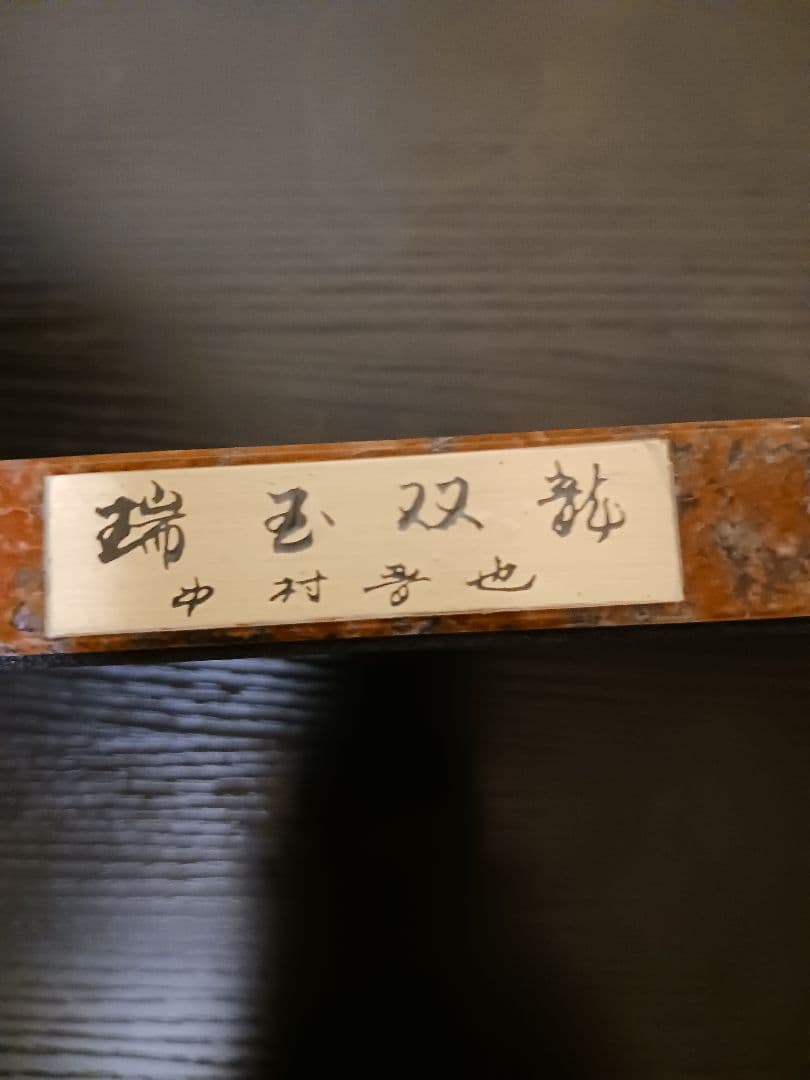 瑞玉双龍
中村晋也